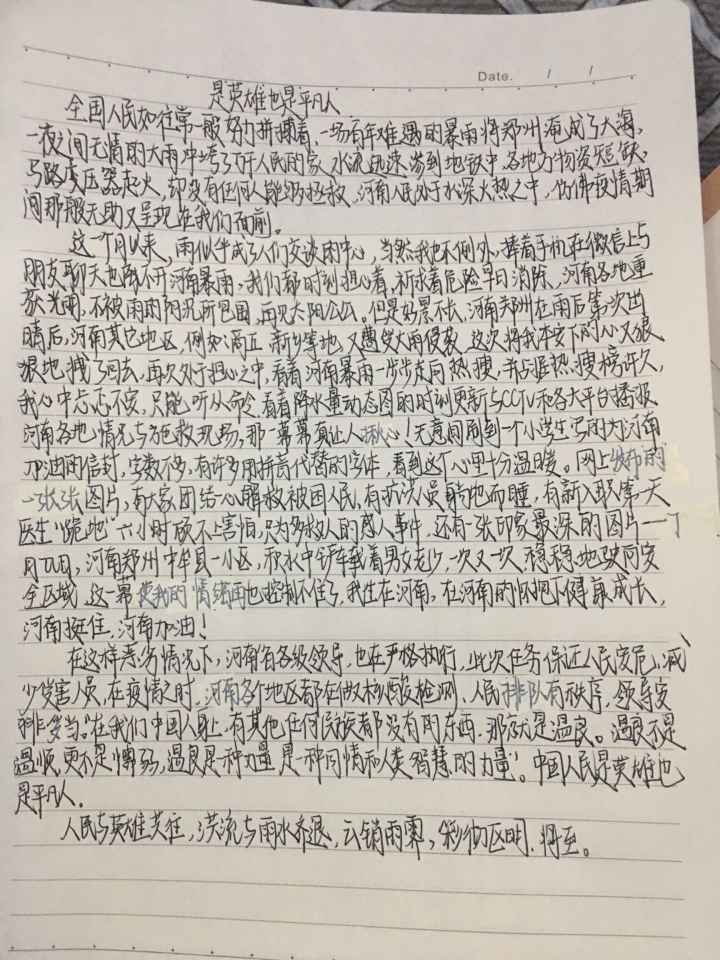 Date. / /
是英雄也是平凡人
全国人民如往常一般努力拼搏着,一场百年难遇的暴雨将郑州淹成了大海,
一夜之间无情的大雨冲垮了万千人民的家,水流迅速涌到地铁中,各地方物资短缺,
马路变压器起火,却没有任何人能够拯救,河南人民处于水深火热之中,仿佛疫情期
间那般无助又呈现在我们面前。
这一个月以来,雨似乎成了人们交谈的中心,当然我也不例外,捧着手机在微信上与
朋友聊天也离不开河南暴雨,我们都时刻担心着,祈求着危险早日消除,河南各地重
放光明,不被雨的阴况所包围,再见太阳公公。但是好景不长,河南郑州在雨后第一次出
晴后,河南其它地区,例如:商丘 新乡等地,又遭受大雨侵袭,这次将我本安下的心又狠
狠地拽了回去,再次处于担心之中,看着河南暴雨一步步走向热搜,并占据热搜榜许久,
我心中忐忑不安,只能听从命令,看着降水量动态图的时刻更新与CCTV和各大平台播报
河南各地情况与施救现场,那一幕幕真让人揪心!无意间刷到一个小学生写的为河南
加油的信封,字数不多,有许多用拼音代替的字体,看到这个心里十分温暖。网上发布的
一张张图片,有大家团结一心解救被困人民,有抗洪人员躺地而睡,有新入职第一天
医生"跪地"六小时顾不上害怕,只为多救人的感人事件,还有一张印象最深的图片——7
月22日,河南郑州中牟县一小区,积水中铲车载着男女老少,一次又一次,稳稳地驶向安
全区域,这一幕使我的情绪再也控制不住了,我生在河南,在河南的怀抱下健康成长,
河南挺住,河南加油!
在这样恶劣情况下,河南省各级领导,也在严格执行,此次任务保证人民安危,减
少受害人员,在疫情之时,河南各个地区都在做核酸检测,人民排队有秩序,领导安
排妥当。"在我们中国人身上,有其他任何民族都没有的东西,那就是温良。温良不是
温顺,更不是懦弱,温良是一种力量,是一种同情和人类智慧的力量"。中国人民是英雄也
是平凡人.
人民与英雄共往,洪流与雨水齐退,云销雨霁,彩彻区明,将至。